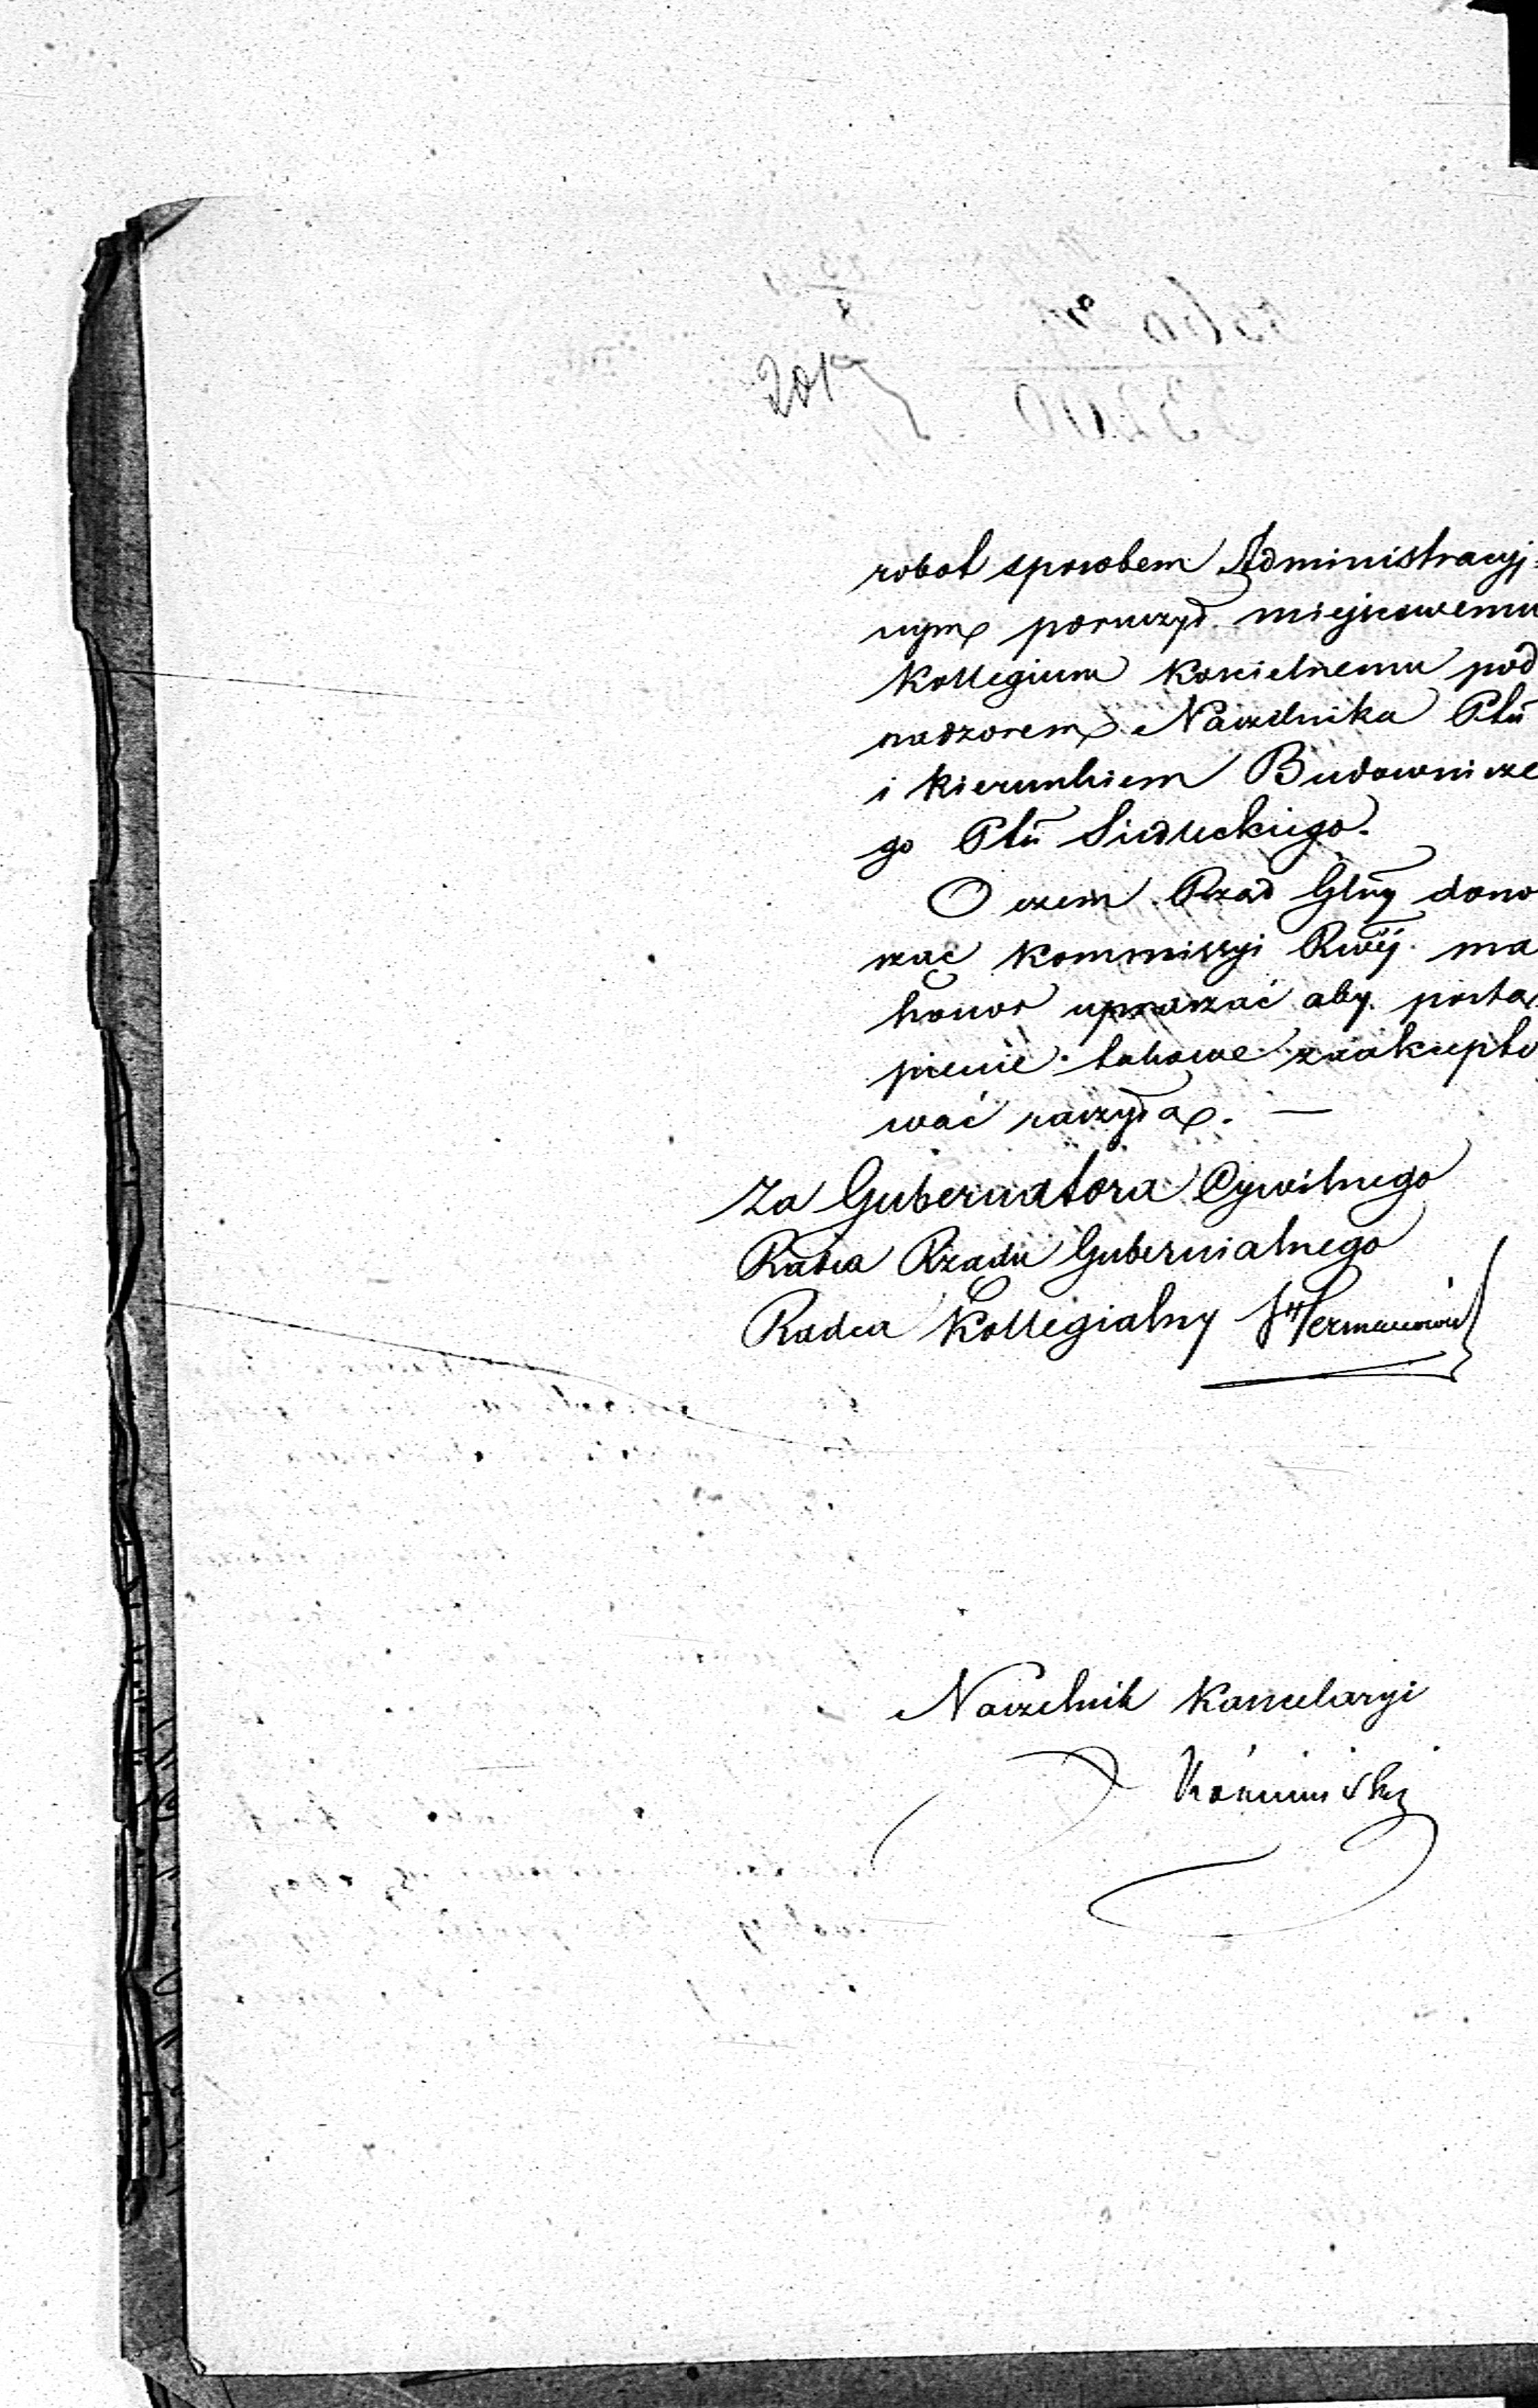 201
robot sposobem Administracyj=
nym poruczył miejscowemu
Kollegium Kościelnemu pod
nadzorem Naczelnika Ptu
i Kierunkiem Budownicze
go Ptu Siedleckiego.
O czem Rząd Glny dono
sząc Kommissyi Rwéj ma
honor upraszać aby postą
pienie takowe zaakcepto
wać raczyła. —
Za Gubernatora Cywilnego
Radca Rządu Gubernialnego
Radca Kollegialny Hermanowicz
Naczelnik Kancelaryi